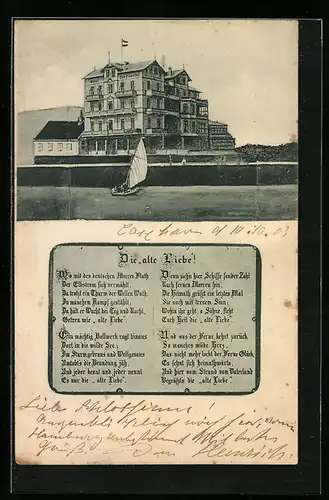 Cuxhaven d 10.10.03
Die „alte Liebe“!
Wo mit des deutschen Meeres Fluth
Der Elbstrom sich vermählt,
Da trotzt ein Thurm der Wellen Wuth
In manchem Kampf gestählt;
Da hält er Wacht bei Tag und Nacht,
Getreu wie „alte Liebe“.
Ein mächtig Bollwerk ragt hinaus
Dort in die wilde See,
Im Sturmgebraus und Wellgesaus
Umtobt's die Brandung jäh,
Und jeder kennt und jeder nennt
Es nur die „alte Liebe“.
Denn ziehn hier Schiffe sonder Zahl
Nach fernen Meeren hin,
Die Heimath grüßt ein letztes Mal
Sie noch mit treuem Sinn;
Wohin ihr geht, o Söhne, fleht
Euch Heil die „alte Liebe“.
Und aus der Ferne kehrt zurück
So manches müde Herz,
Das nicht mehr lockt der Ferne Glück,
Es sehnt sich heimathwärts,
Und hier vom Strand von Vaterland
Begrüßt's die „alte Liebe“.
Lieber
Hamburg
Gruß Dein Heinrich